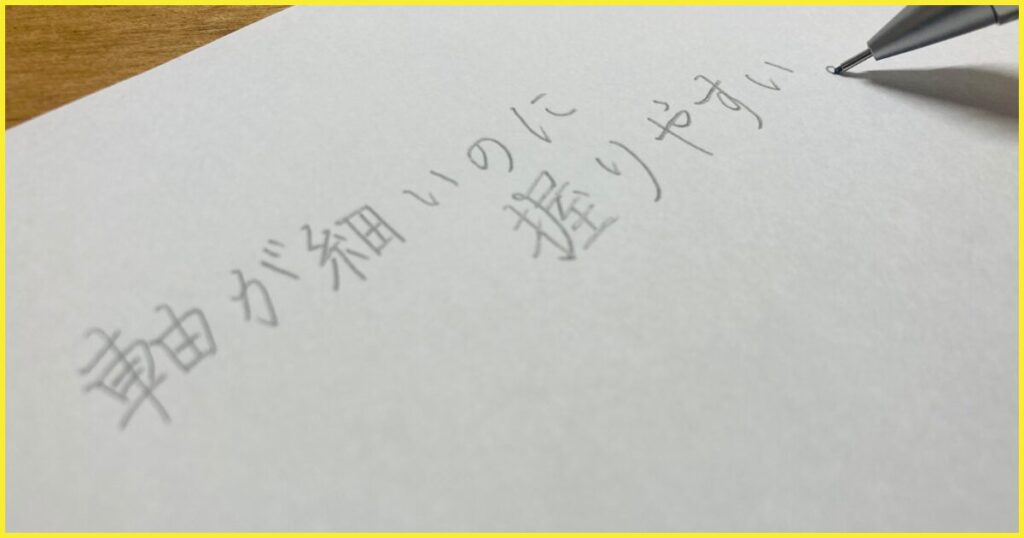 軸が細いのに
握りやすい